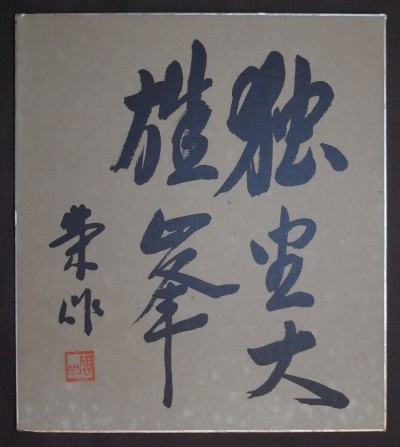 独坐大
雄峯
榮作